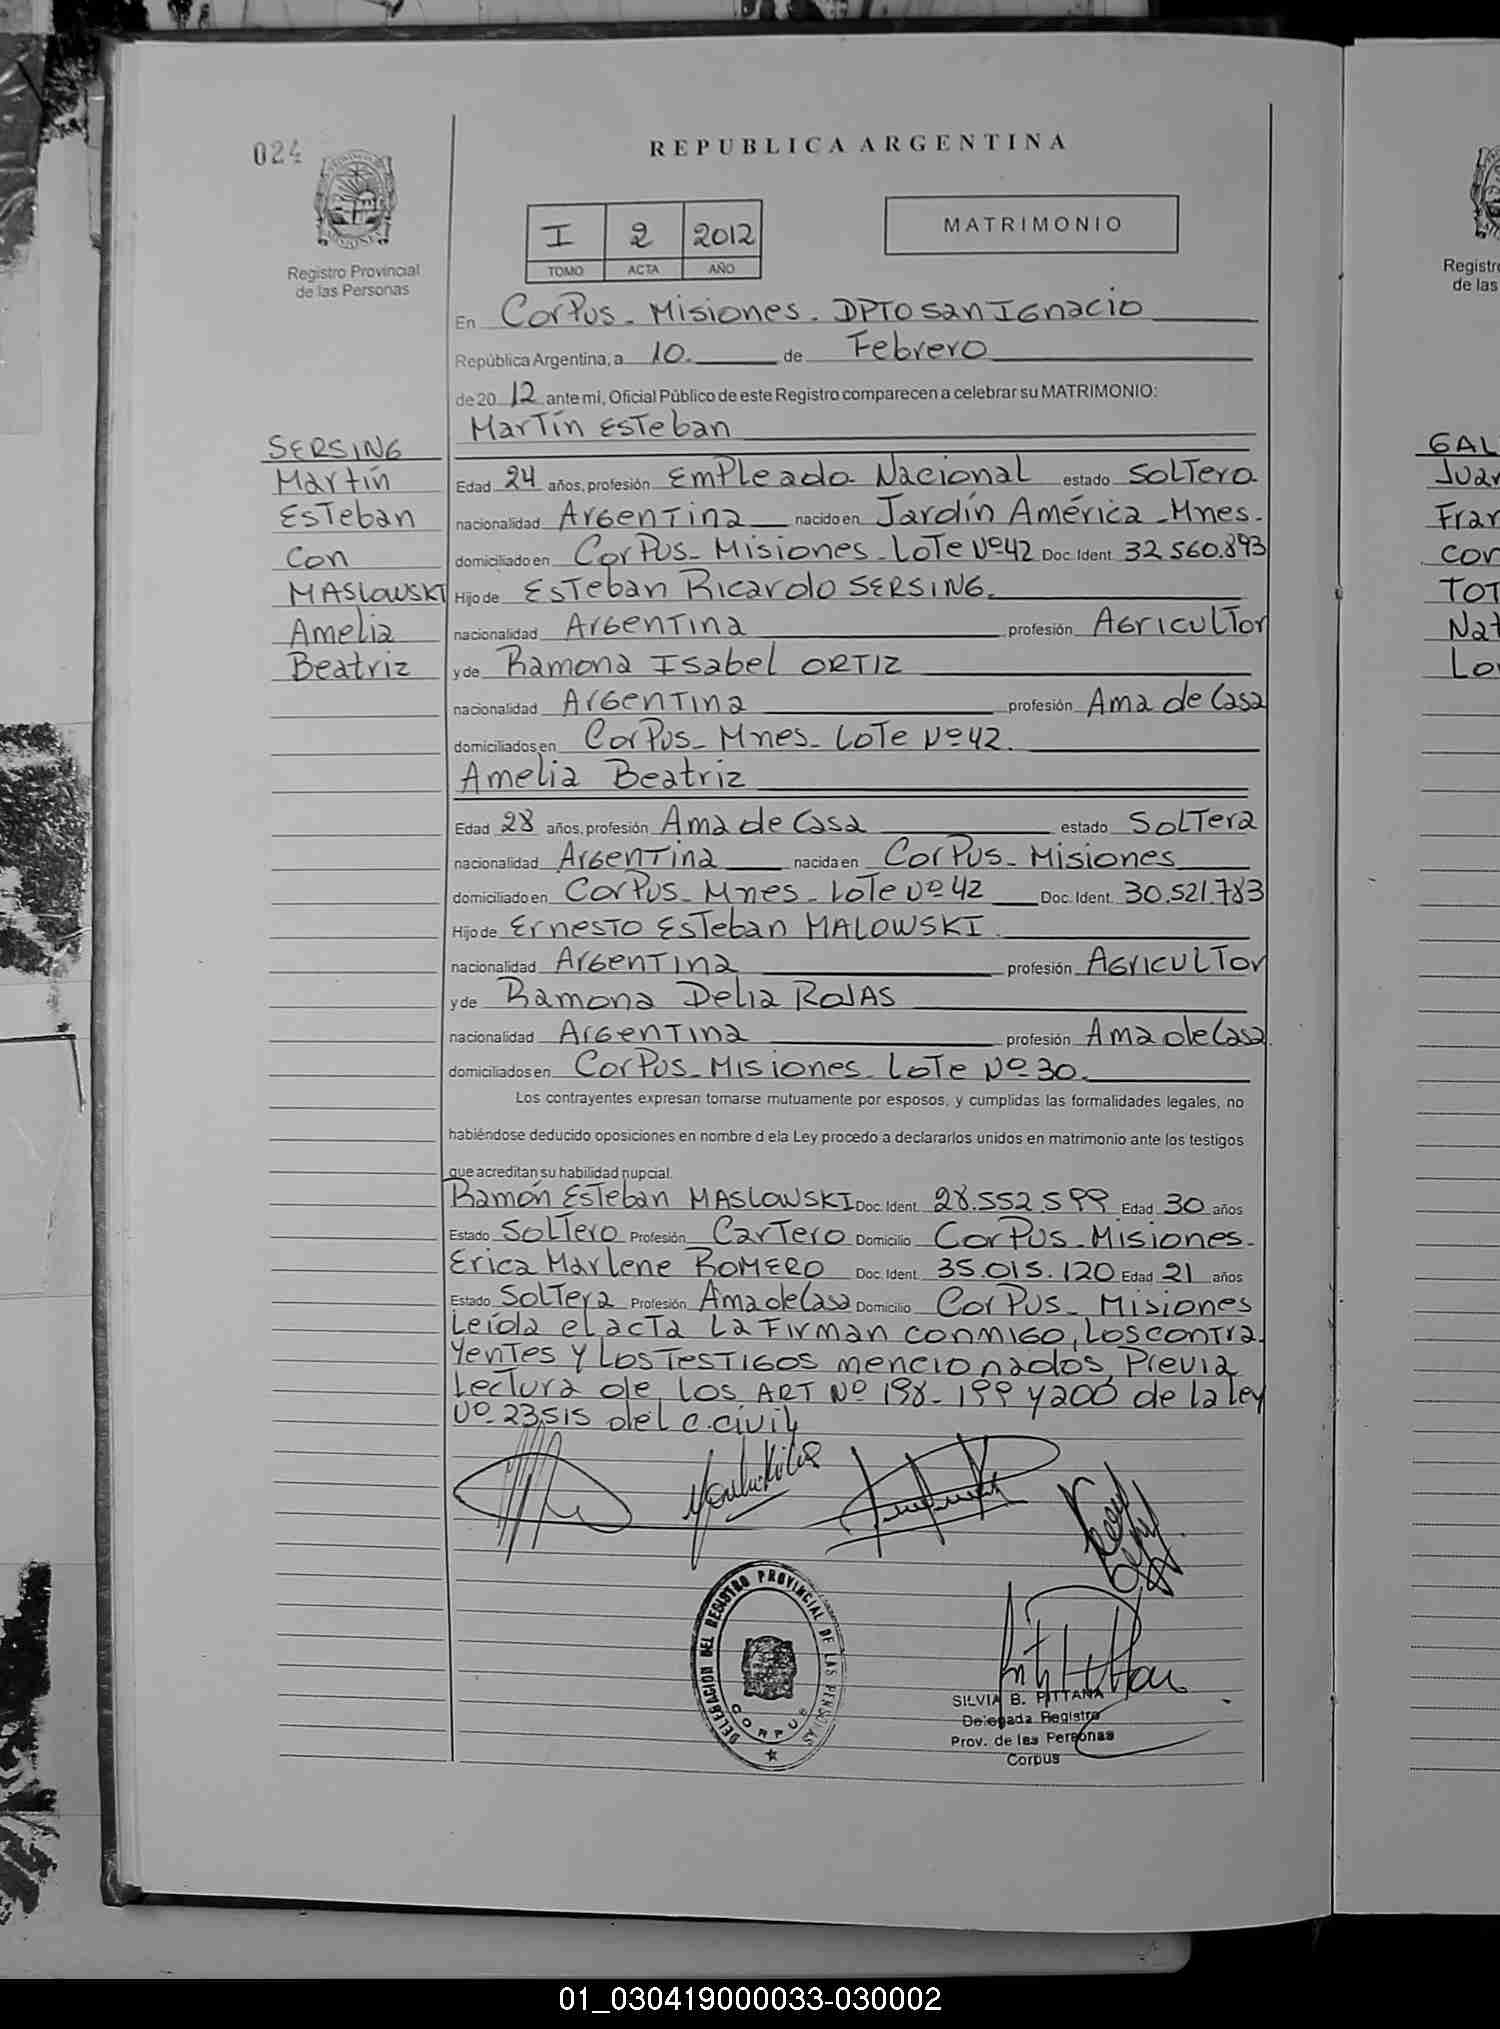 024
REPUBLICA ARGENTINA
I 2 2012
TOMO ACTA AÑO
MATRIMONIO
Registro Provincial
de las Personas
En Corpus - Misiones - DPTO San Ignacio
República Argentina, a 10. de Febrero
de 20 12 ante mi, Oficial Público de este Registro comparecen a celebrar su MATRIMONIO:
Martín Esteban
SERSING
Martín
Esteban
con
MASLOWSKI
Amelia
Beatriz
Edad 24 años, profesión Empleado Nacional estado Soltero
nacionalidad Argentina nacido en Jardín América - Mnes.
domiciliado en Corpus - Misiones - Lote Nº 42 Doc. Ident. 32.560.893
Hijo de Esteban Ricardo SERSING.
nacionalidad Argentina profesión Agricultor
y de Ramona Isabel ORTIZ
nacionalidad Argentina profesión Ama de Casa
domiciliados en Corpus - Mnes - Lote Nº 42.
Amelia Beatriz
Edad 28 años, profesión Ama de Casa estado Soltera
nacionalidad Argentina nacida en Corpus - Misiones
domiciliado en Corpus - Mnes - Lote Nº 42 Doc. Ident. 30.521.783
Hijo de Ernesto Esteban MALOWSKI.
nacionalidad Argentina profesión Agricultor
y de Ramona Delia ROJAS
nacionalidad Argentina profesión Ama de Casa
domiciliados en Corpus - Misiones - Lote Nº 30.
Los contrayentes expresan tomarse mutuamente por esposos, y cumplidas las formalidades legales, no
habiéndose deducido oposiciones en nombre d ela Ley procedo a declararlos unidos en matrimonio ante los testigos
que acreditan su habilidad nupcial.
Ramón Esteban MASLOWSKI Doc. Ident. 28.552.599 Edad 30 años
Estado Soltero Profesión Cartero Domicilio Corpus - Misiones.
Erica Marlene ROMERO Doc. Ident. 35.015.120 Edad 21 años
Estado Soltera Profesión Ama de Casa Domicilio Corpus - Misiones
Leída el acta la firman conmigo, los contra
yentes y los testigos mencionados, previa
lectura de los ART Nº 198 - 199 y 200 de la ley
Nº 23.515 del C. Civil
DELEGACION DEL REGISTRO PROVINCIAL DE LAS PERSONAS
CORPUS
SILVIA B. PITTANA
Delegada Registro
Prov. de las Personas
Corpus
Registro
de las
GAL
Juan
Fran
con
TOT
Nat
Lo
01_030419000033-030002